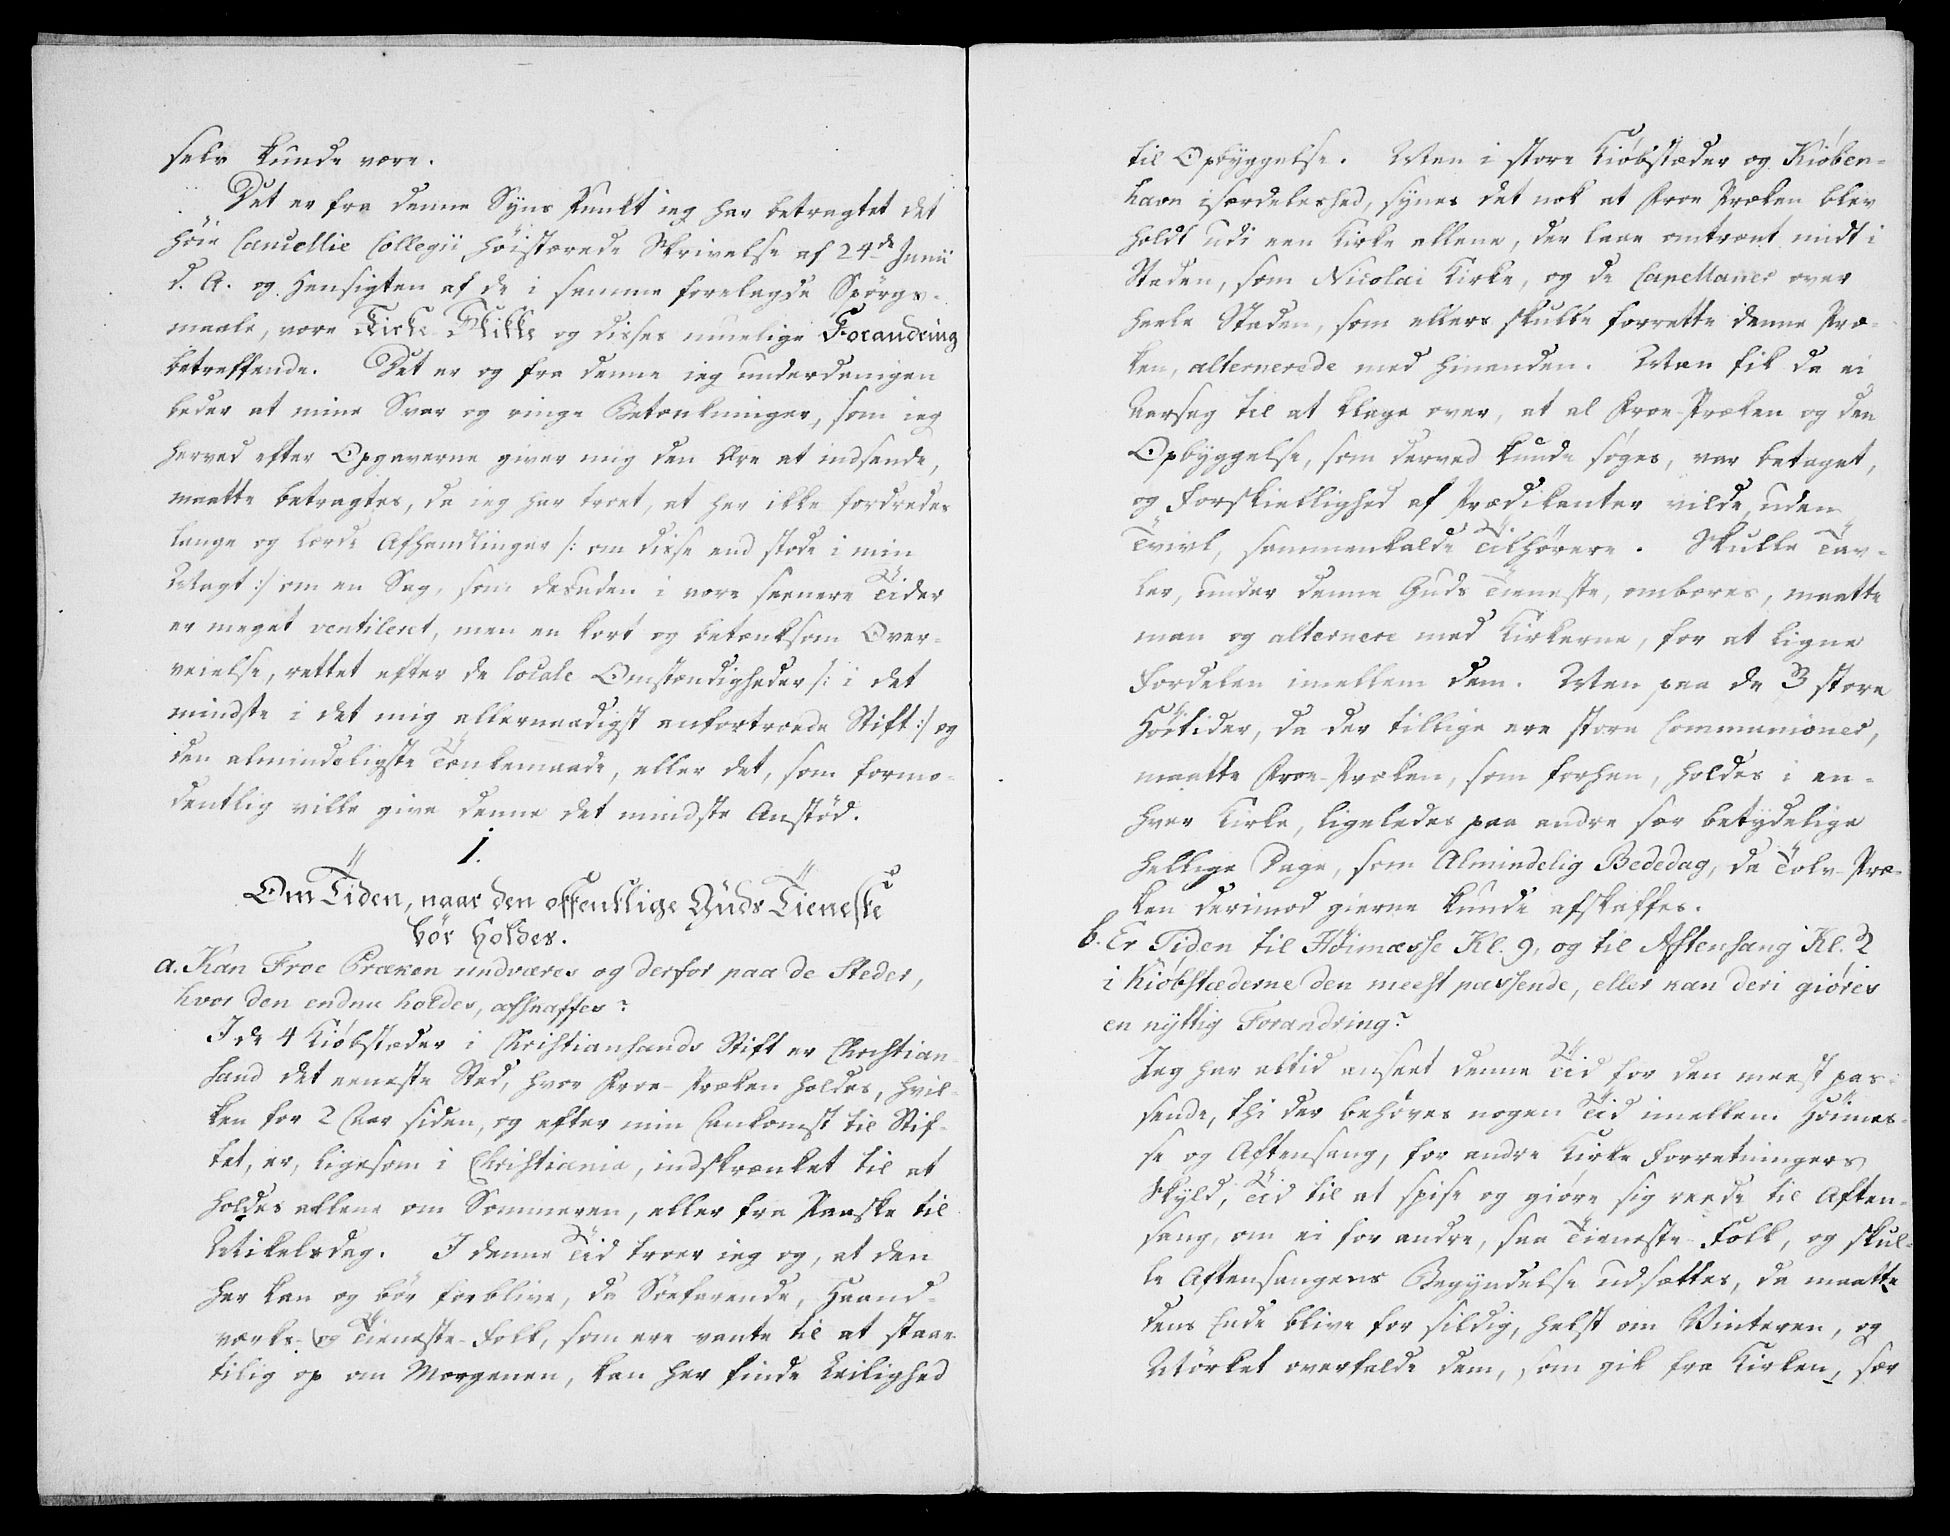 selv kunde være.
Det er fra denne Syns Punkt ieg har betragtet det
høie Cancellie Collegii høistærede Skrivelse af 24de Junii
d. A. og Hensigten af de i samme forelagde Spörgs-
maale, vore Kirke Skikke og disses muelige Forandring
betreffende. Det er og fra denne ieg underdanigen
beder at mine Svar og ringe Betænkninger, som ieg
herved efter Opgaverne giver mig den Ære at indsende,
maatte betragtes, da ieg har troet, at her ikke fordredes
lange og lærde Afhandlinger /: om disse end stode i min
Magt :/ om en Sag, som desuden i vore seenere Tider
er meget ventileret, men en kort og betænksom Over-
veielse, rettet efter de locale Omstændigheder /: i det
mindste i det mig allernaadigst anfortroede Stift :/ og
den almindeligste Tænkemaade, eller det, som formo-
dentlig ville give denne det mindste Anstöd.
1.
Om Tiden, naar den offentlige Guds Tieneste
bör holdes.
a. Kan Froe Præken undværes og derfor paa de Steder,
hvor den endnu holdes, afskaffes?
I de 4 Kiöbstæder i Christiansands Stift er Christian-
sand det eeneste Sted, hvor Froe-Præken holdes, hvil-
ken for 2 Aar siden, og efter min Ankomst til Stif-
tet, er, ligesom i Christiania, indskrænket til at
holdes allene om Sommeren, eller fra Paaske til
Mikelsdag. I denne Tid troer ieg og, at den
her kan og bör forblive, da Söefarende, Haand-
værks- og Tieneste-Folk, som ere vante til at staae
tilig op om Morgenen, kan her finde Leilighed
til Opbyggelse. Men i store Kiöbstæder og Kiöben-
havn isærdeleshed, synes det nok at Froe Præken blev
holdt udi een Kirke allene, der laae omtrent midt i
Staden, som Nicolai Kirke, og de Capellaner over
heele Staden, som ellers skulle forrette denne Præ-
ken, alternerede med hinanden. Man fik da ei
Aarsag til at klage over, at al Froe-Præken og den
Opbyggelse, som derved kunde söges, var betaget,
og Forskiellighed af Prædikanter vilde, uden
Tvivl, sammenkalde Tilhörere. Skulle Tav-
ler, under denne Guds Tieneste, ombæres, maatte
man og alternere med Kirkerne, for at ligne
Fordelen imellem dem. Men paa de 3 store
Höitider, da der tillige ere store Communioner,
maatte Froe-Præken, som forhen, holdes i en-
hver Kirke, ligeledes paa andre sær betydelige
hellige Dage, som Almindelig Bededag, da Tolv-Præ-
ken derimod gierne kunde afskaffes.
b. Er Tiden til Höimæsse Kl. 9, og til Aftensang Kl. 2
i Kiöbstæderne den meest passende, eller kan deri giöres
en nyttig Forandring?
Jeg har altid anseet denne Tid for den meest pas-
sende, thi der behöves nogen Tid imellem Höimes-
se og Aftensang, for andre Kirke Forretningers
Skyld, Tid til at spise og giöre sig reede til Aften-
sang, om ei for andre, saa Tieneste-Folk, og skul-
le Aftensangens Begyndelse udsættes, da maatte
dens Ende blive for sildig, helst om Vinteren, og
Mörket overfalde dem, som gik fra Kirken, sær